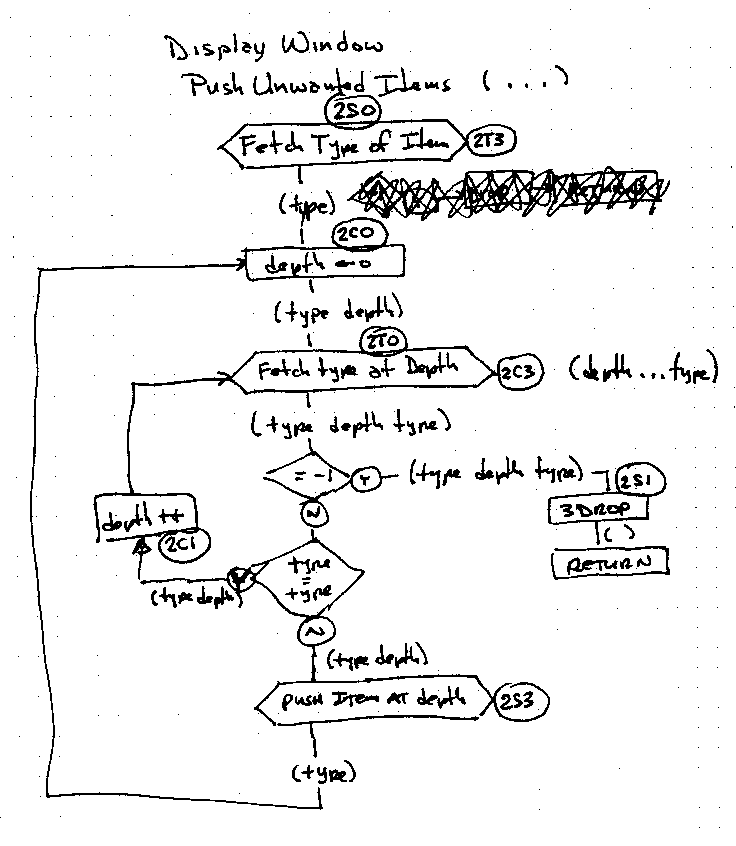 Display Window
Push Unwanted Items (...)
2S0
Fetch Type of Item 2T3
(type)
2C0
depth ← 0
(type depth)
2T0
Fetch type at Depth 2C3 (depth...type)
(type depth type)
= -1 Y (type depth type) 2S1
3DROP
N
( )
RETURN
depth ++
2C1
type
=
type
(type depth)
N
(type depth)
PUSH ITEM AT depth 2S3
(type)